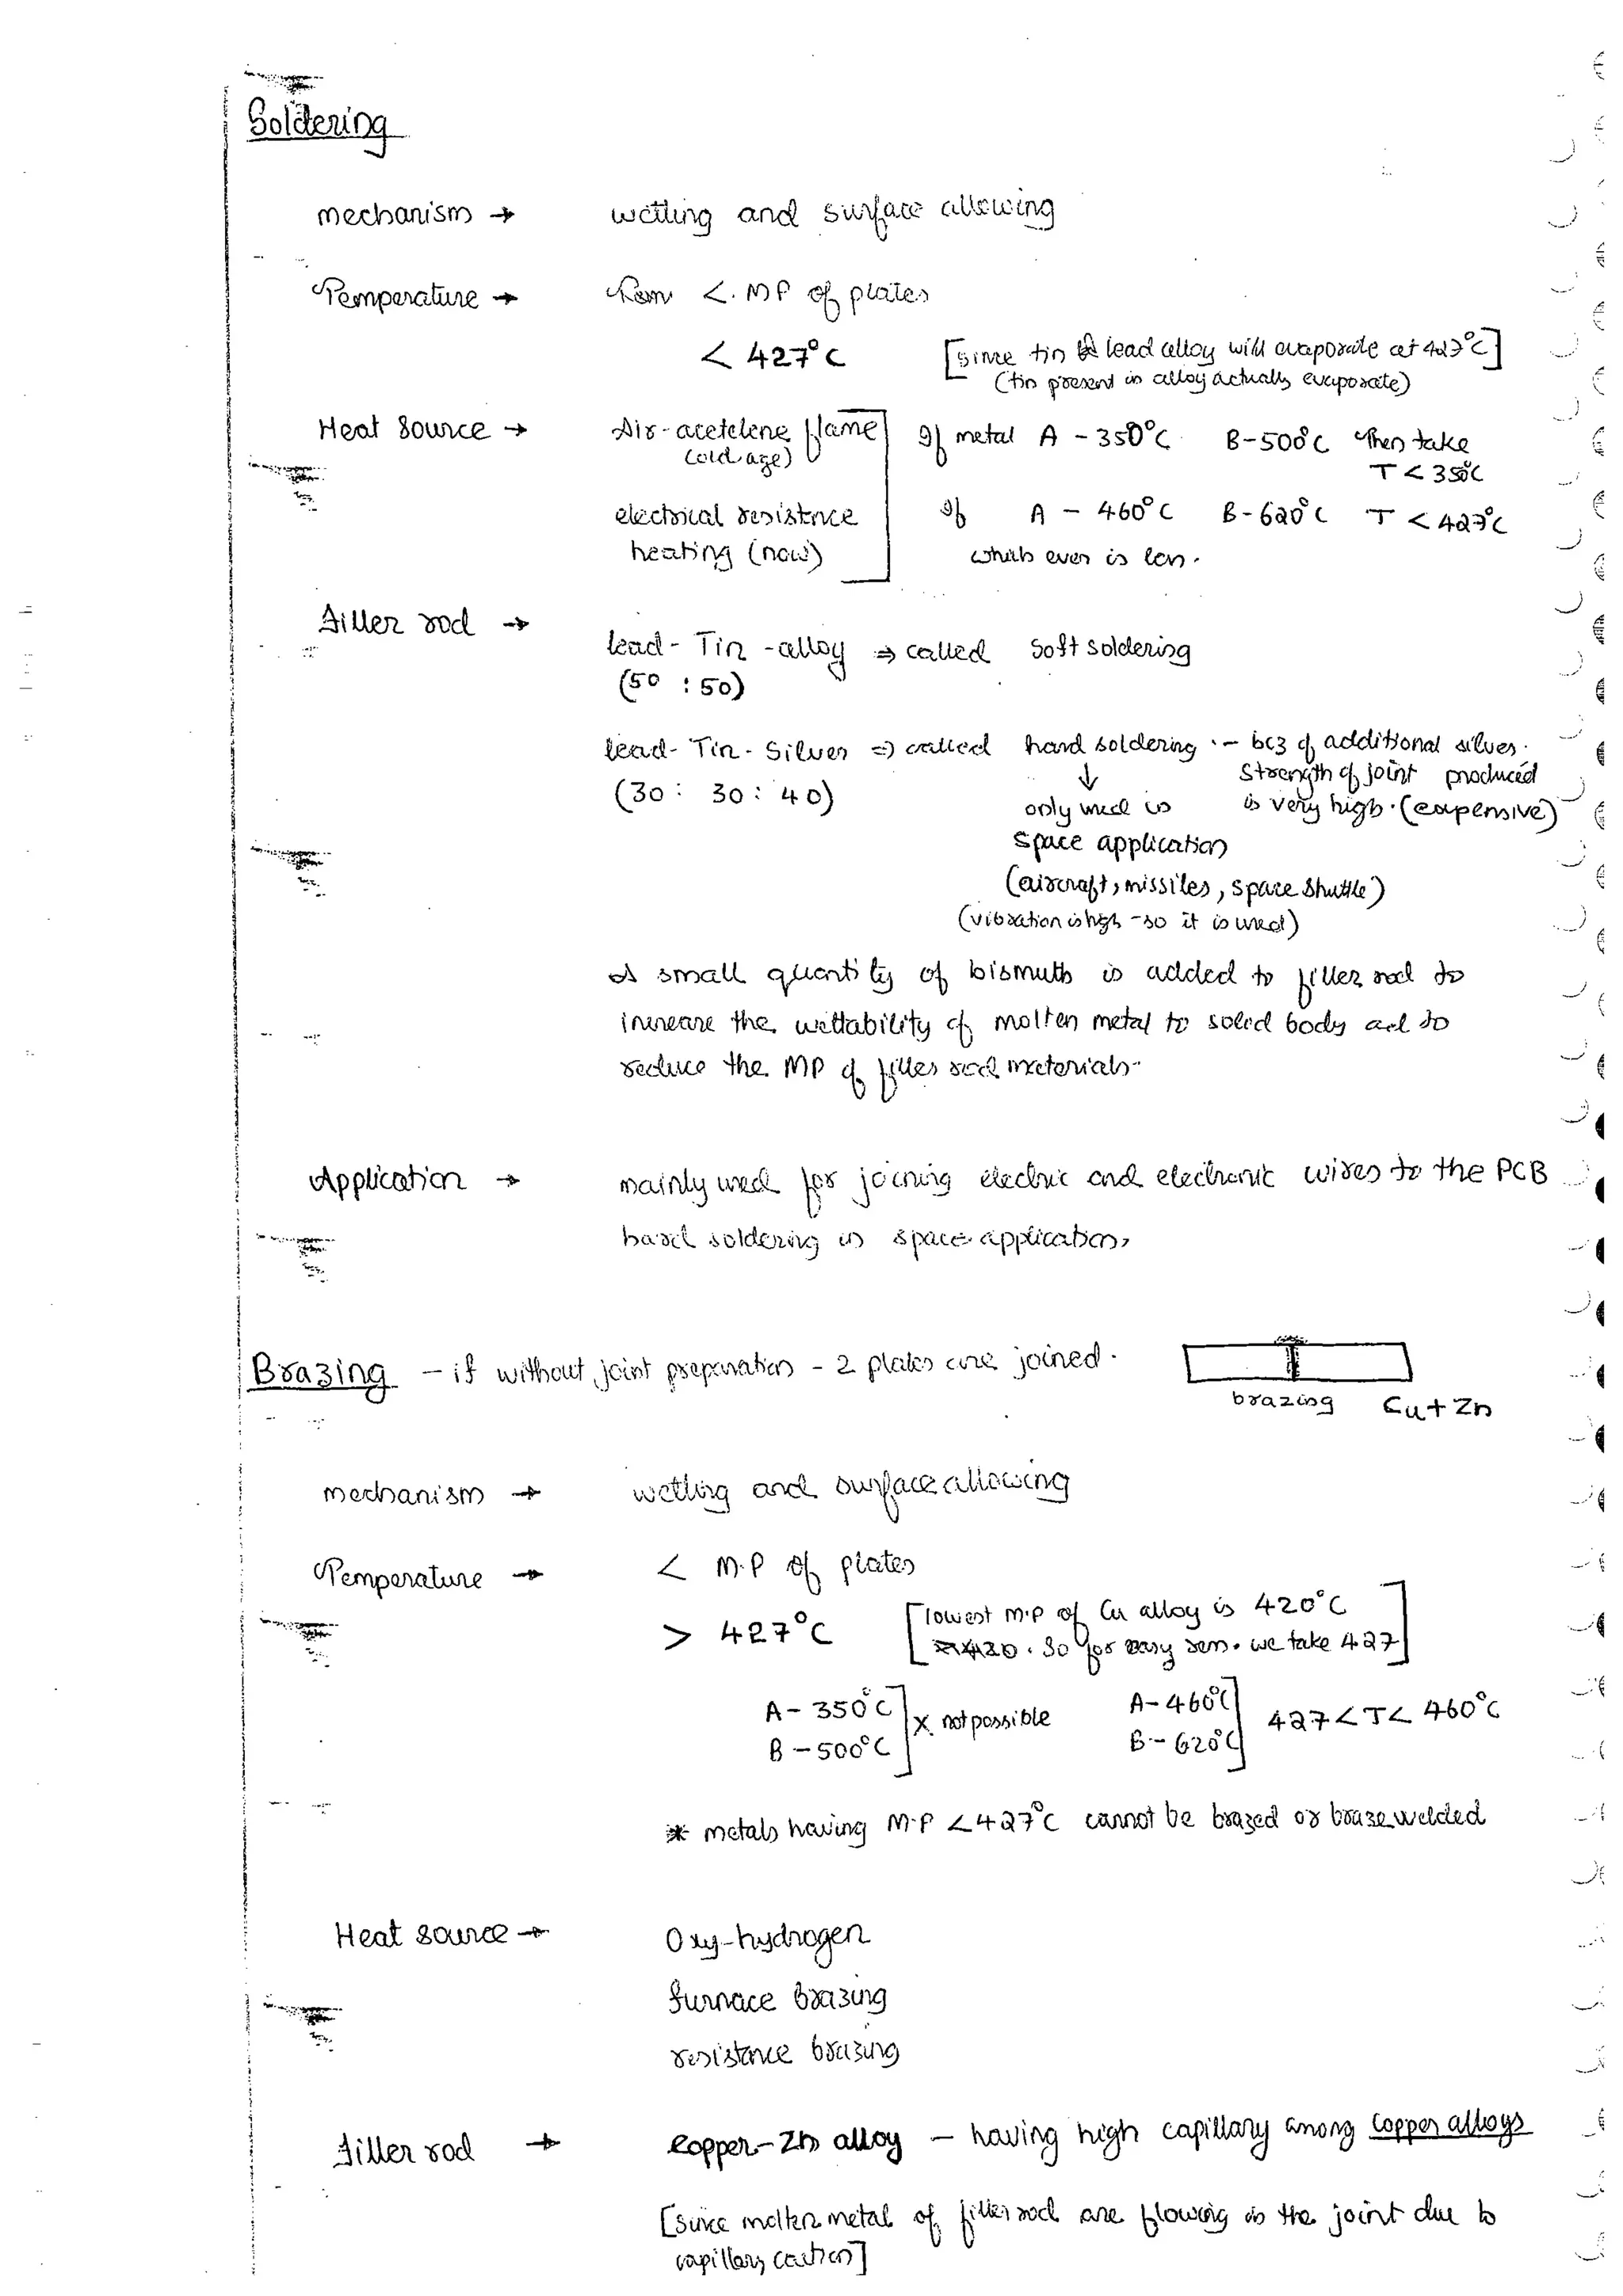 Soldering
mechanism → wetting and surface allowing
Temperature → Tem < MP of plates
< 427°C [since tin lead alloy will evaporate at 427°C]
(tin present in alloy actually evaporate)
Heat source → Air-acetelene flame (old age)
electrical resistence heating (now)
If metal A - 350°C B-500°C then take T < 350°C
If A - 460°C B-620°C T < 427°C
which ever is less.
Filler rod →
lead - Tin - alloy ⇒ called soft soldering
(50 : 50)
lead - Tin - Silver ⇒ called hard soldering - bcz of additional silver.
(30 : 30 : 40)
↓
Strength of joint produced
is very high. (expensive)
only used in
space application
(aircraft, missiles, space shuttle)
(vibration is high - so it is used)
A small quantity of bismuth is added to filler rod to
increase the wettability of molten metal to solid body and to
reduce the MP of filler rod materials.
Application → mainly used for joining electric and electronic wires to the PCB
hard soldering in space application,
Brazing - if without joint preparation - 2 plates are joined.
brazing Cu + Zn
mechanism → wetting and surface allowing
Temperature → < M.P of plates
> 427°C [lowest m.p of Cu alloy is 420°C
. So for easy rem. we take 427]
A - 350°C
B - 500°C ] X not possible
A - 460°C
B - 620°C ] 427 < T < 460°C
* metals having M.P < 427°C cannot be brazed or braze welded
Heat source → Oxy-hydrogen
furnace brazing
resistence brazing
Filler rod → Copper - Zn alloy - having high capillary among copper alloys
[since molten metal of filler rod are flowing in the joint due to
capillary action]